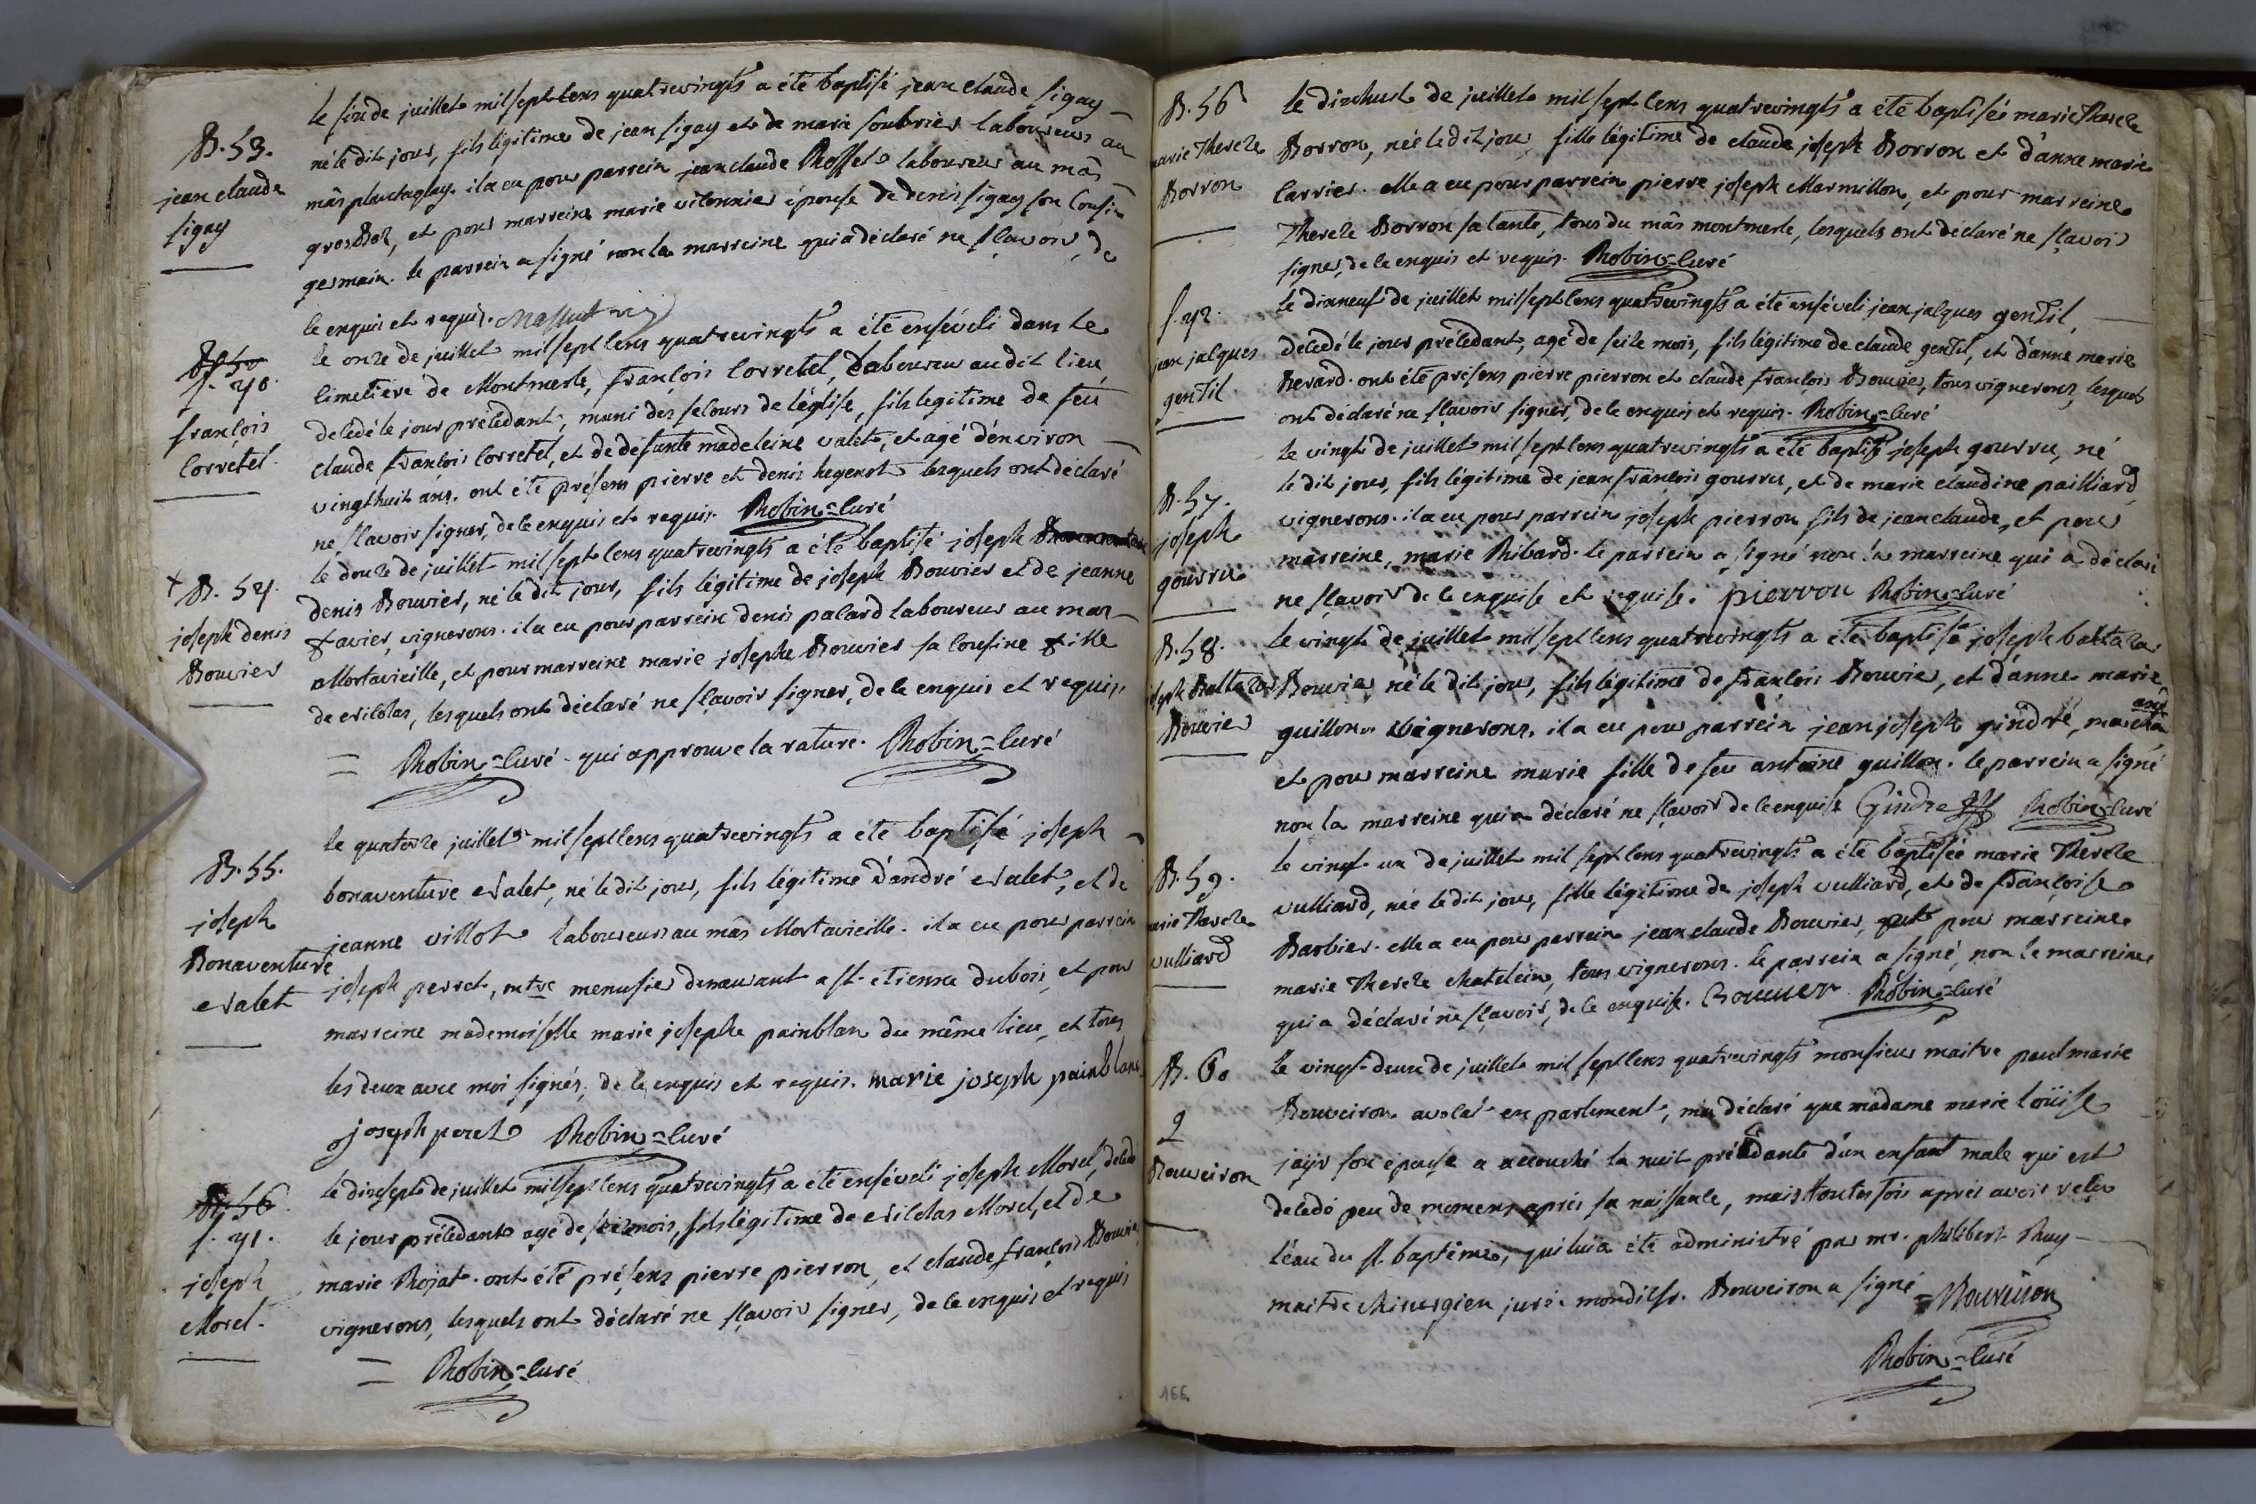 B. 53.
jean claude
sigay
le six de juillet mil sept cens quatrevingts a été baptisé jean claude sigay
né le dit jour, fils légitime de jean sigay et de marie soubrier laboureurs au
mâs plantaglay. il a eu pour parrein jean claude Rosset laboureur au mâs
grosbos, et pour marreine marie vitonnier épouse de denis sigay son cousin
germain. le parrein a signé non la marreine qui a déclaré ne sçavoir, de
ce enquis et requis.
f. 40.
françois
corretel.
le onze de juillet mil sept cens quatrevingts a été enséveli dans le
cimetière de Montmerle, françois corretel, laboureur au dit lieu
décédé le jour précédant, muni des secours de l'église, fils legitime de feu
claude françois corretel, et de défunte madeleine valet, et agé d'environ
vingt huit ans. ont été présens pierre et denis hugenot lesquels ont déclaré
ne sçavoir signer, de ce enquis et requis. Robin = curé
+ B. 54.
joseph denis
Bouvier
le douze de juillet mil sept cens quatrevingts a été baptisé joseph
denis Bouvier, né le dit jour, fils légitime de joseph Bouvier et de jeanne
xavier, vignerons. il a eu pour parrein denis palard laboureur au mas
Mortavieille, et pour marreine marie josephe Bouvier sa cousine fille
de Nicolas, lesquels ont déclaré ne sçavoir signer, de ce enquis et requis
= Robin = curé - qui approuve la rature. Robin = curé
B. 55.
joseph
Bonaventure
Valet
le quatorze juillet mil sept cens quatrevingts a été baptisé joseph
bonaventure Valet, né le dit jour, fils légitime d'andré Valet, et de
jeanne villot laboureurs au mâs Mortavieille. il a eu pour parrein
joseph perret, mtre menusier demeurant a st. etienne du bois, et pour
marreine mademoiselle marie josephe painblan du même lieu, et tous
les deux avec moi signés, de ce enquis et requis. marie joseph painblanc
joseph peret Robin = curé
B. 56
f. 41.
joseph
Morel.
le dixsept de juillet mil sept cens quatrevingts a été enséveli joseph Morel, décédé
le jour précédant agé de seize mois, fils légitime de Nicolas Morel, et de
marie Rojat. ont été présens pierre pierron, et claude françois Bouvier
vignerons, lesquels ont déclaré ne sçavoir signer, de ce enquis et requis
= Robin = curé
B. 56
marie Therese
Borron
le dixhuit de juillet mil sept cens quatrevingts a été baptisée marie Therese
Borron, née le dit jour, fille légitime de claude joseph Borron et d'anne marie
carrier. elle a eu pour parrein pierre joseph Marmillon, et pour marreine
Therese Borron sa tante, tous du mâs montmerle, lesquels ont déclaré ne sçavoir
signer, de ce enquis et requis. Robin = curé
f. 42.
jean jacques
gentil
le dixneuf de juillet mil sept cens quatrevingts a été enséveli jean jacques gentil,
décédé le jour précédant, agé de seize mois, fils légitime de claude gentil, et d'anne marie
Berard. ont été présens pierre pierron et claude françois Bouvier, tous vignerons, lesquels
ont déclaré ne sçavoir signer, de ce enquis et requis. Robin = curé
B. 57.
joseph
gourru
le vingt de juillet mil sept cens quatrevingts a été baptisé joseph gourru, né
le dit jour, fils légitime de jean françois gourru, et de marie claudine pailliard
vignerons. il a eu pour parrein joseph pierron fils de jean claude, et pour
marreine, marie Ribard. le parrein a signé non la marreine qui a déclaré
ne sçavoir de ce enquise et requise. pierron Robin = curé
B. 58.
joseph Baltazar
Bouvier
le vingt de juillet mil sept cens quatrevingts a été baptisé joseph baltazar
Bouvier né le dit jour, fils légitime de françois Bouvier, et d'anne marie
guillon vignerons. il a eu pour parrein jean joseph gindré, marchand
et pour marreine marie fille de feu antoine guillon. le parrein a signé
non la marreine qui a déclaré ne sçavoir de ce enquise Gindre Robin = curé
B. 59.
marie Therese
vulliard
le vingt un de juillet mil sept cens quatrevingts a été baptisée marie Therese
vulliard, née le dit jour, fille légitime de joseph vulliard, et de françoise
Barbier. elle a eu pour parrein jean claude Bouvier, et pour marreine
marie Therese chatelain, tous vignerons. le parrein a signé, non la marreine
qui a déclaré ne sçavoir, de ce enquise. Bouvier Robin = curé
B. 60
Bouveiron
le vingt-deux de juillet mil sept cens quatrevingts monsieur maitre paul marie
Bouveiron avocat en parlement, m'a déclaré que madame marie loüise
jayr son épouse a accouché la nuit précédante d'un enfant male qui est
décédé peu de momens après sa naissance, mais toutesfois après avoir reçu
l'eau du st. baptême, qui lui a été administré par mr. philibert Ruy
maitre chirurgien juré. mondit sr. Bouveiron a signé = Bouveiron
Robin = curé
166